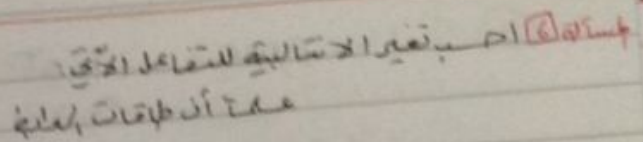 مسألة 6 احسب تغير الانثالبية للتفاعل الآتي:
علمًا أن طاقات الروابط